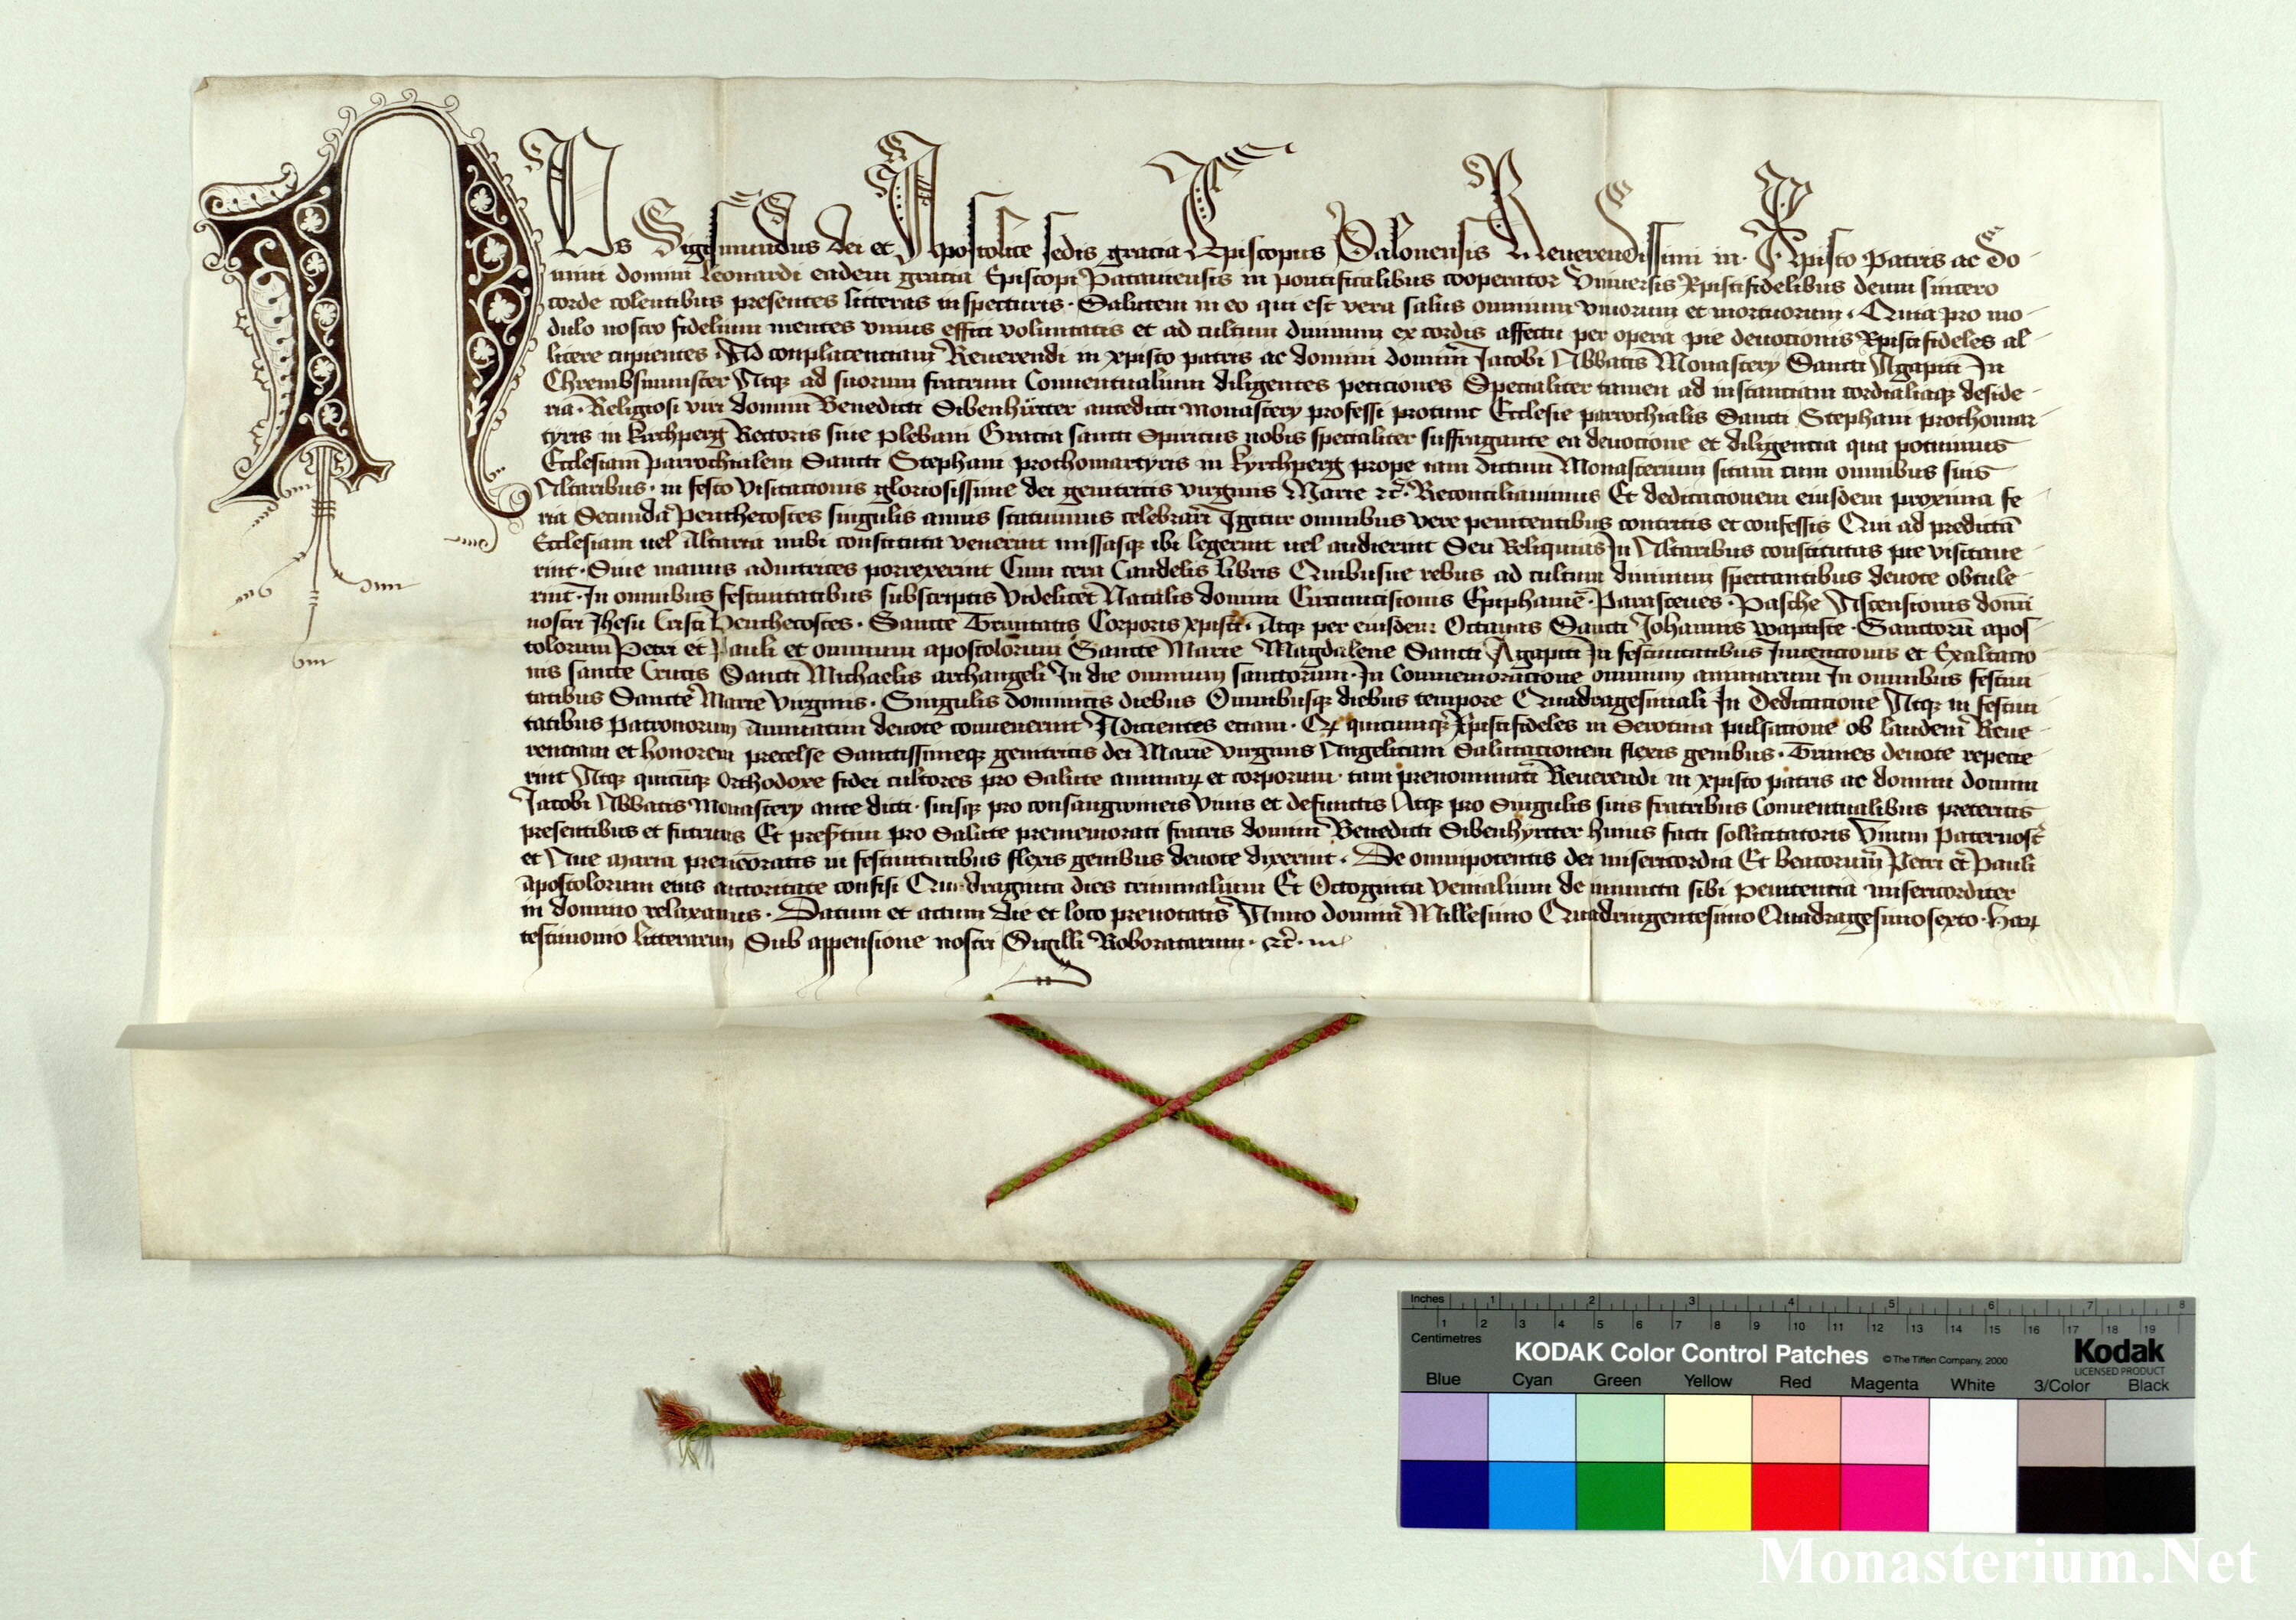 Nos Sigismundus dei et Apostolice sedis gracia Episcopus Salonensis Reverendissimi in Christo Patris ac do-
mini domini leonardi eadem gracia Episcopi Pataviensis in pontificalibus cooperator Vniuersis Xpistifidelibus deum sincero
corde colentibus presentes litteras inspecturis. Salutem in eo qui est vera salus omnium viuorum et mortuorum. Quia pro mo-
dulo nostro fidelium mentes vnius effici voluntatis et ad cultum diuinum ex cordis affectu per opera pie deuocionis Xpistifideles al-
licere cupientes. Ad conplacenciam Reuerendi in xpisto patris ac domini domini Jacobi Abbatis Monastery Sancti Agapiti In
Chrembsmunster Atq; ad suorum fratrum Conuentualium diligentes peticiones Specialiter tamen ad instanciam cordialiaq; deside-
ria. Religiosi viri domini Benedicti Sibenhürter antedicti monastery professi protunc Ecclesie parrochialis Sancti Stephani prothomar-
tyris in kirchperg Rectoris siue plebani Gracia sancti Spiritus nobis specialiter suffragante ea deuocione et diligencia qua potuimus
Ecclesiam parrochialem Sancti Stephani prothomartyris in kyrchperg prope iam dictum Monasterium sitam cum omnibus suis
Altaribus. in festo Visitacionis gloriosissime dei genitricis virginis Marie etc. Reconciliauimus Et dedicacionem eiusdem proxima fe-
ria Secunda Penthecostes singulis annis statuimus celebrari Igitur omnibus vere penitentibus contritis et confessis Qui ad predictā
Ecclesiam uel Altaria inibi constituta venerint missasq; ibi legerint uel audierint Seu Reliquias In Altaribus constitutas pie visitaue-
rint. Siue manus adiutrices porrexerint Cum cera Candelis libris Quibusue rebus ad cultum diuinum spectantibus deuote obtule-
rint. In omnibus festiuitatibus subscriptis Videlicet Natalis domini Circumcisionis Epiphanie. Parasceues. Pasche Ascensionis domi
nostri Jhesu Cristi Penthecostes. Sancte Trinitatis Corporis xpisti. Atq; per eiusdem Octauas Sancti Johannis waptiste. Sanctorū apos-
tolorum Petri et Pauli et omnium apostolorum Sancte Marie Magdalene Sancti Agapiti In festiuitatibus Inuencionis et Exaltacio-
nis sancte Crucis Sancti Michaelis archangeli In die omnium sanctorum. In Commemoracione omnium animarum In omnibus festiui-
tatibus Sancte Marie Virginis. Singulis dominicis diebus Omnibusq; diebus tempore Quadragesimali In Dedicacione Atq; in festiui-
tatibus patronorum Annuatim deuote conuenerint Adicientes eciam. Qz quicumq; Xpistifideles in Serotina pulsacione ob laudem Reue-
renciam et honorem precelse Sanctissimeq; genitricis dei Marie virginis Angelicam Salutacionem flexis genibus. Trines deuote repecie-
rint Atq; quicūq; Orthodoxe fidei cultores pro Salute animarꝝ et corporum. tam prenominati Reuerendi in xpisto patris ac domini domini
Jacobi Abbatis Monastery ante dicti. suisq; pro consangwineis Viuis et defunctis Atq; pro Singulis suis fratribus Conuentualibus preteritis
presentibus et futuris Et presertim pro Salute prememorati fratris domini Benedicti Sibenhyrtter huius facti sollicitatoris Vnum Paternost̄
et Aue maria in festiuitatibus flexis genibus deuote dixerint. De omnipotentis dei misericordia Et beatorum Petri et Pauli
apostolorum eius auctoritate confisi Quadraginta dies criminalium Et Octoginta venialium de iniuncta sibi penitencia misericorditer
in domino relaxamus. Datum et actum die et loco prenotatis Anno domini Millesimo Quadringentesimo Quadragesimosexto. harꝝ
testimonio litterarum Sub appensione nostri Sigilli Roboratarum. etc.
Inches 1 2 3 4 5 6 7 8
1 2 3 4 5 6 7 8 9 10 11 12 13 14 15 16 17 18 19
Centimetres
KODAK Color Control Patches © The Tiffen Company, 2000 Kodak
LICENSED PRODUCT
Blue Cyan Green Yellow Red Magenta White 3/Color Black
Monasterium.Net